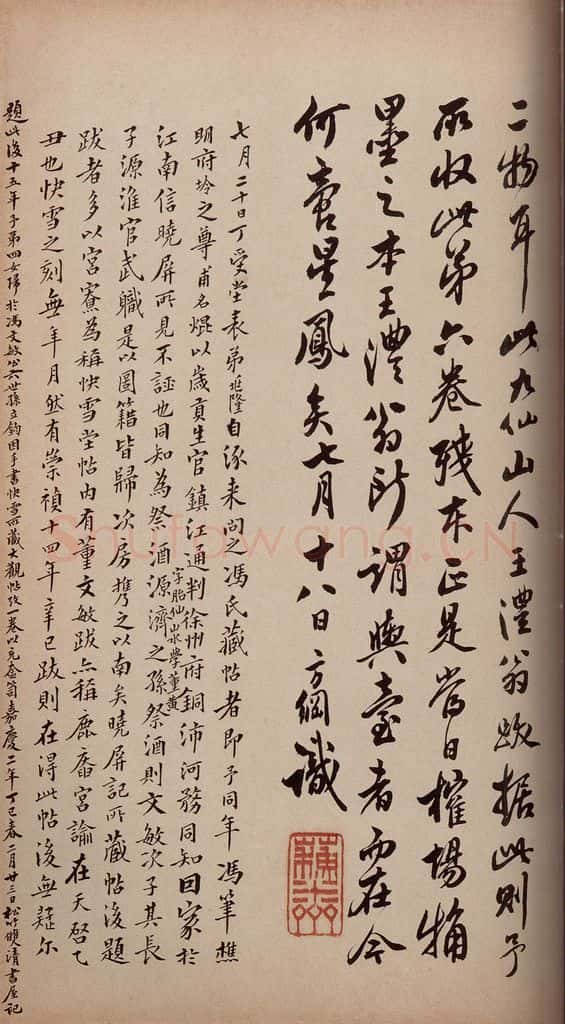 二物耳此九仙山人王澧翁跋据此則予
所收此第六卷殘本正是當日榷場楠
墨之本王澧翁所謂輿臺者而在今
何啻星鳳矣七月十八日方綱識
七月二十日丁受堂表弟兆隆自涿来問之馮氏藏帖者即予同年馮筆樵
明府埁之尊甫名焜以歲貢生官鎮江通判徐州府銅沛河務同知回家於
江南信曉屏所見不誣也同知為祭酒源濟之孫祭酒則文敏次子其長
字胎仙山水學董黃
子源淮官武職是以圖籍皆歸次房攜之以南矣曉屏記所藏帖後題
跋者多以宮寮為稱快雪堂帖内有董文敏跋亦稱鹿菴宮諭在天啓乙
丑也快雪之刻無年月然有崇禎十四年辛巳跋則在得此帖後無疑尔
題此後十五年予第四女歸於馮文敏公六世孫立鈞因手書快雪所藏大觀帖攷一卷以充奩笥嘉慶二年丁巳春二月廿三日松竹雙清書屋記
Shufawang.CN